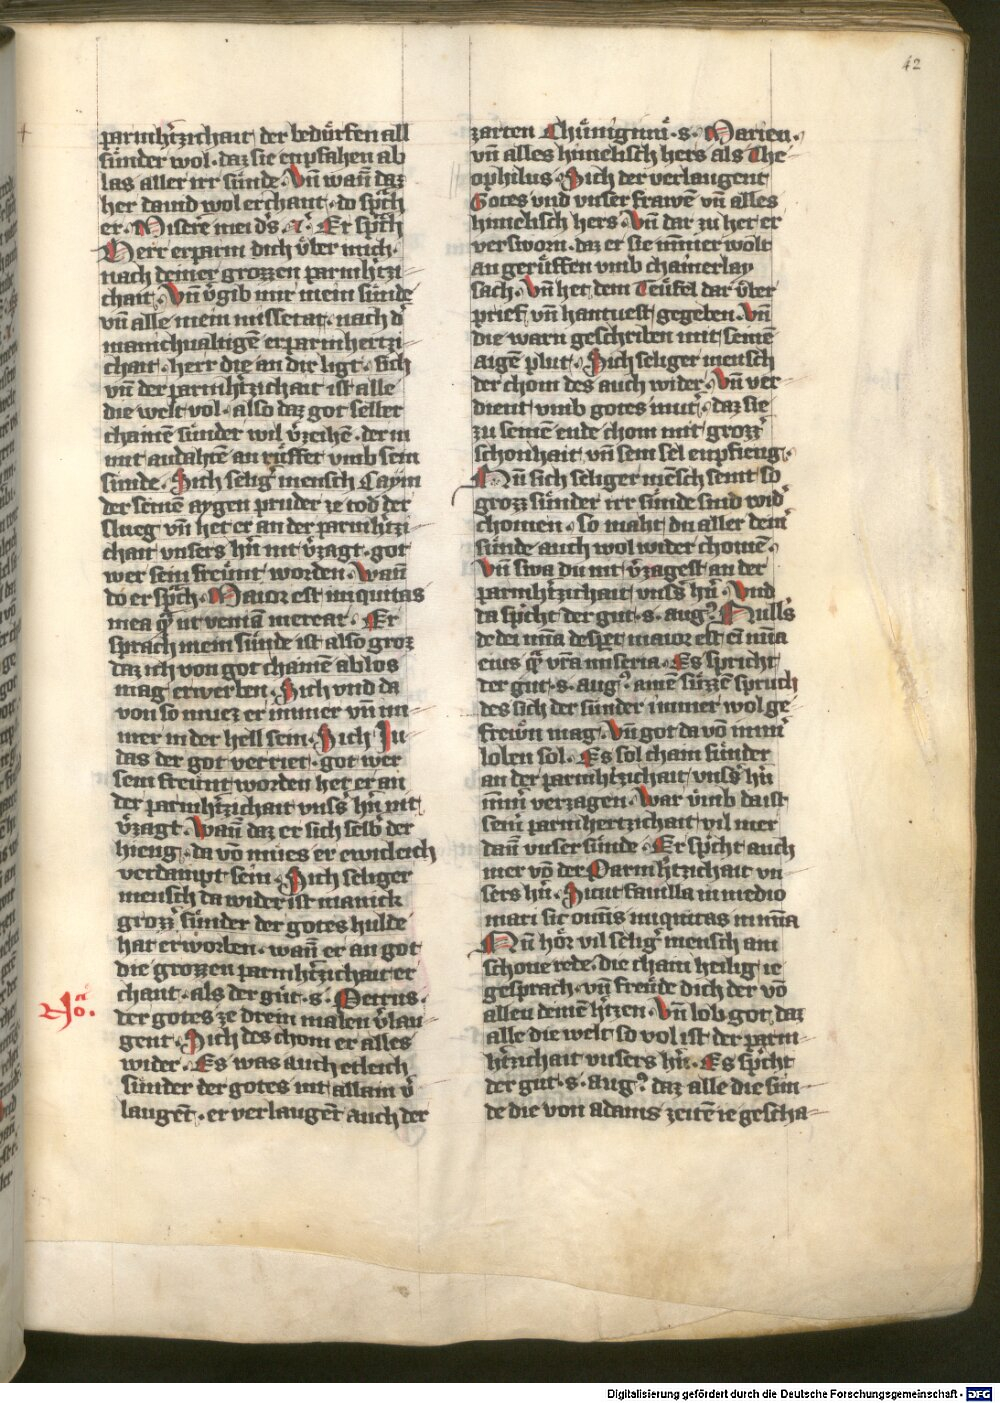 42
parmh'tzichait der bedürfen all
sünder wol · daz sie enpfahen ab
las aller irr sünde · Vn̄ wann̄ daz
her dauid wol erchant · do sp̄ch
er · Misere mei d's · &c · Er sp̄ch
Herr erparm dich über mich ·
nach deiner grozzen parmh'tzi
chait · Vn̄ v'gib mir mein sünde
vn̄ alle mein missetat · nach d'
manichualtigē erparmhertzi
chait · herr die an dir ligt · sich
vn̄ der parmh'tzichait ist alle
die welt vol · also daz got selber
chainē sünder wil v'zeihē · der in
mit andahte an rüffet vmb sein
sünde · Sich selig' mensch Cayin
der seinē aygen pruder ze tod der
slueg vn̄ het er an der parmh'tzi
chait vnsers h'n nit v'zagt · got
wer sein freünt worden · Wann̄
do er sp̄ch · Maior est iniquitas
mea q̄ ut veniā merear · Er
sprach mein sünde ist also groz
daz ich von got chainē ablos
mag erwerben · Sich vnd da
von so muez er immer vn̄ im
mer in der hell sein · Sich Ju
das der got verriet · got wer
sein freunt worden het er an
der parmh'tzichait vnss' h'n nit
v'zagt · Wann̄ daz er sich selb' der
hieng · da vō mües er ewicleich
verdampt sein · Sich seliger
mensch da wider ist manick
grozz' sünder der gotes hulde
hat erworben · wann̄ er an got
die grozzen parmh'tzichait er
chant · als der güt · s · Petrus ·
No ·
der gotes ze drein malen v'lau
gent · Sich des chom er alles
wider · Es was auch etleich
sünder der gotes nit allain v'
laugēt · er verlaugēt auch der
zarten Chüniginn̄ · s · Marien ·
vn̄ alles himelisch hers als The
ophilus · Sich der verlaugent
Gotes vnd vnser frawē vn̄ alles
himelisch hers · Vn̄ dar zu het er
versworn · daz er sie immer wolt
an gerüffen vmb chainerlay
sach · Vn̄ het dem Teüfel dar über
prief vn̄ hantuest gegeben · Vn̄
die warn geschriben mit seinē
aigē plut · Sich seliger mensch
der chom des auch wider · Vn̄ ver
dient vmb gotes mut' · daz sie
zu seinē ende chom mit grozz'
schonhait vn̄ sein sel enpfieng ·
Nu sich seliger mēsch seint so
grozz sünder irr sünde sind wid'
chomen · so maht du aller dein'
sünde auch wol wider chomē ·
Vn̄ swa du nit v'zagest an der
parmh'tzichait vnss' h'n · Vnd
da sp̄cht der gut · s · aug9 · Null9
de dei mīa desp̄et maior est eī mīa
eius q̄ vr̄a miseria · Es spricht
der güt · s · aug9 · ainē süzzē spruch
des sich der sünder immer wol ge
frewn mag · Vn̄ got da vō imm'
loben sol · Es sol cham sünder
an der parmh'tzichait vnss' h'n
nīm' verzagen · War vmb da ist
sein' parmhertzichait vil mer
dann̄ vnser sünde · Er sp̄cht auch
mer vō der Parmh'tzichait vn
sers h'n · Sicut fauilla in medio
mari sic om̄is iniquitas in mīa
Nu hör vil selig' mensch ain
schone rede · die cham heilig ie
gesprach · vn̄ freüde dich der vō
allen deinē h'tzen · Vn̄ lob got daz
alle die welt so vol ist der parm
h'tzichait vnsers h'n · Es sp̄cht
der gut · s · aug9 · daz alle die sün
de die von adams zeitē ie gescha
Digitalisierung gefördert durch die Deutsche Forschungsgemeinschaft - DFG